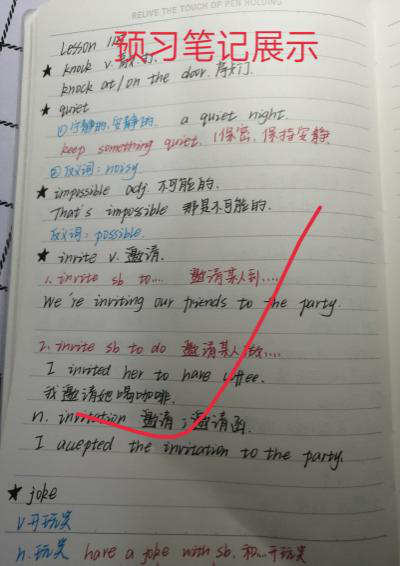 RELIVE THE TOUCH OF PEN HOLDING
预习笔记展示
Lesson
★ knock v. 敲
knock at/on the door. 敲门.
★ quiet
① 宁静的, 安静的. a quiet night.
keep something quiet. 保密, 保持安静
② 反义词: noisy
★ impossible adj. 不可能的.
That's impossible 那是不可能的.
反义词: possible.
★ invite v. 邀请.
1. invite sb to.... 邀请某人到....
We're inviting our friends to the party.
2. invite sb to do 邀请某人做....
I invited her to have coffee.
我邀请她喝咖啡.
n. invitation 邀请; 邀请函.
I accepted the invitation to the party.
★ joke
v 开玩笑
n. 玩笑 have a joke with sb. 和...开玩笑